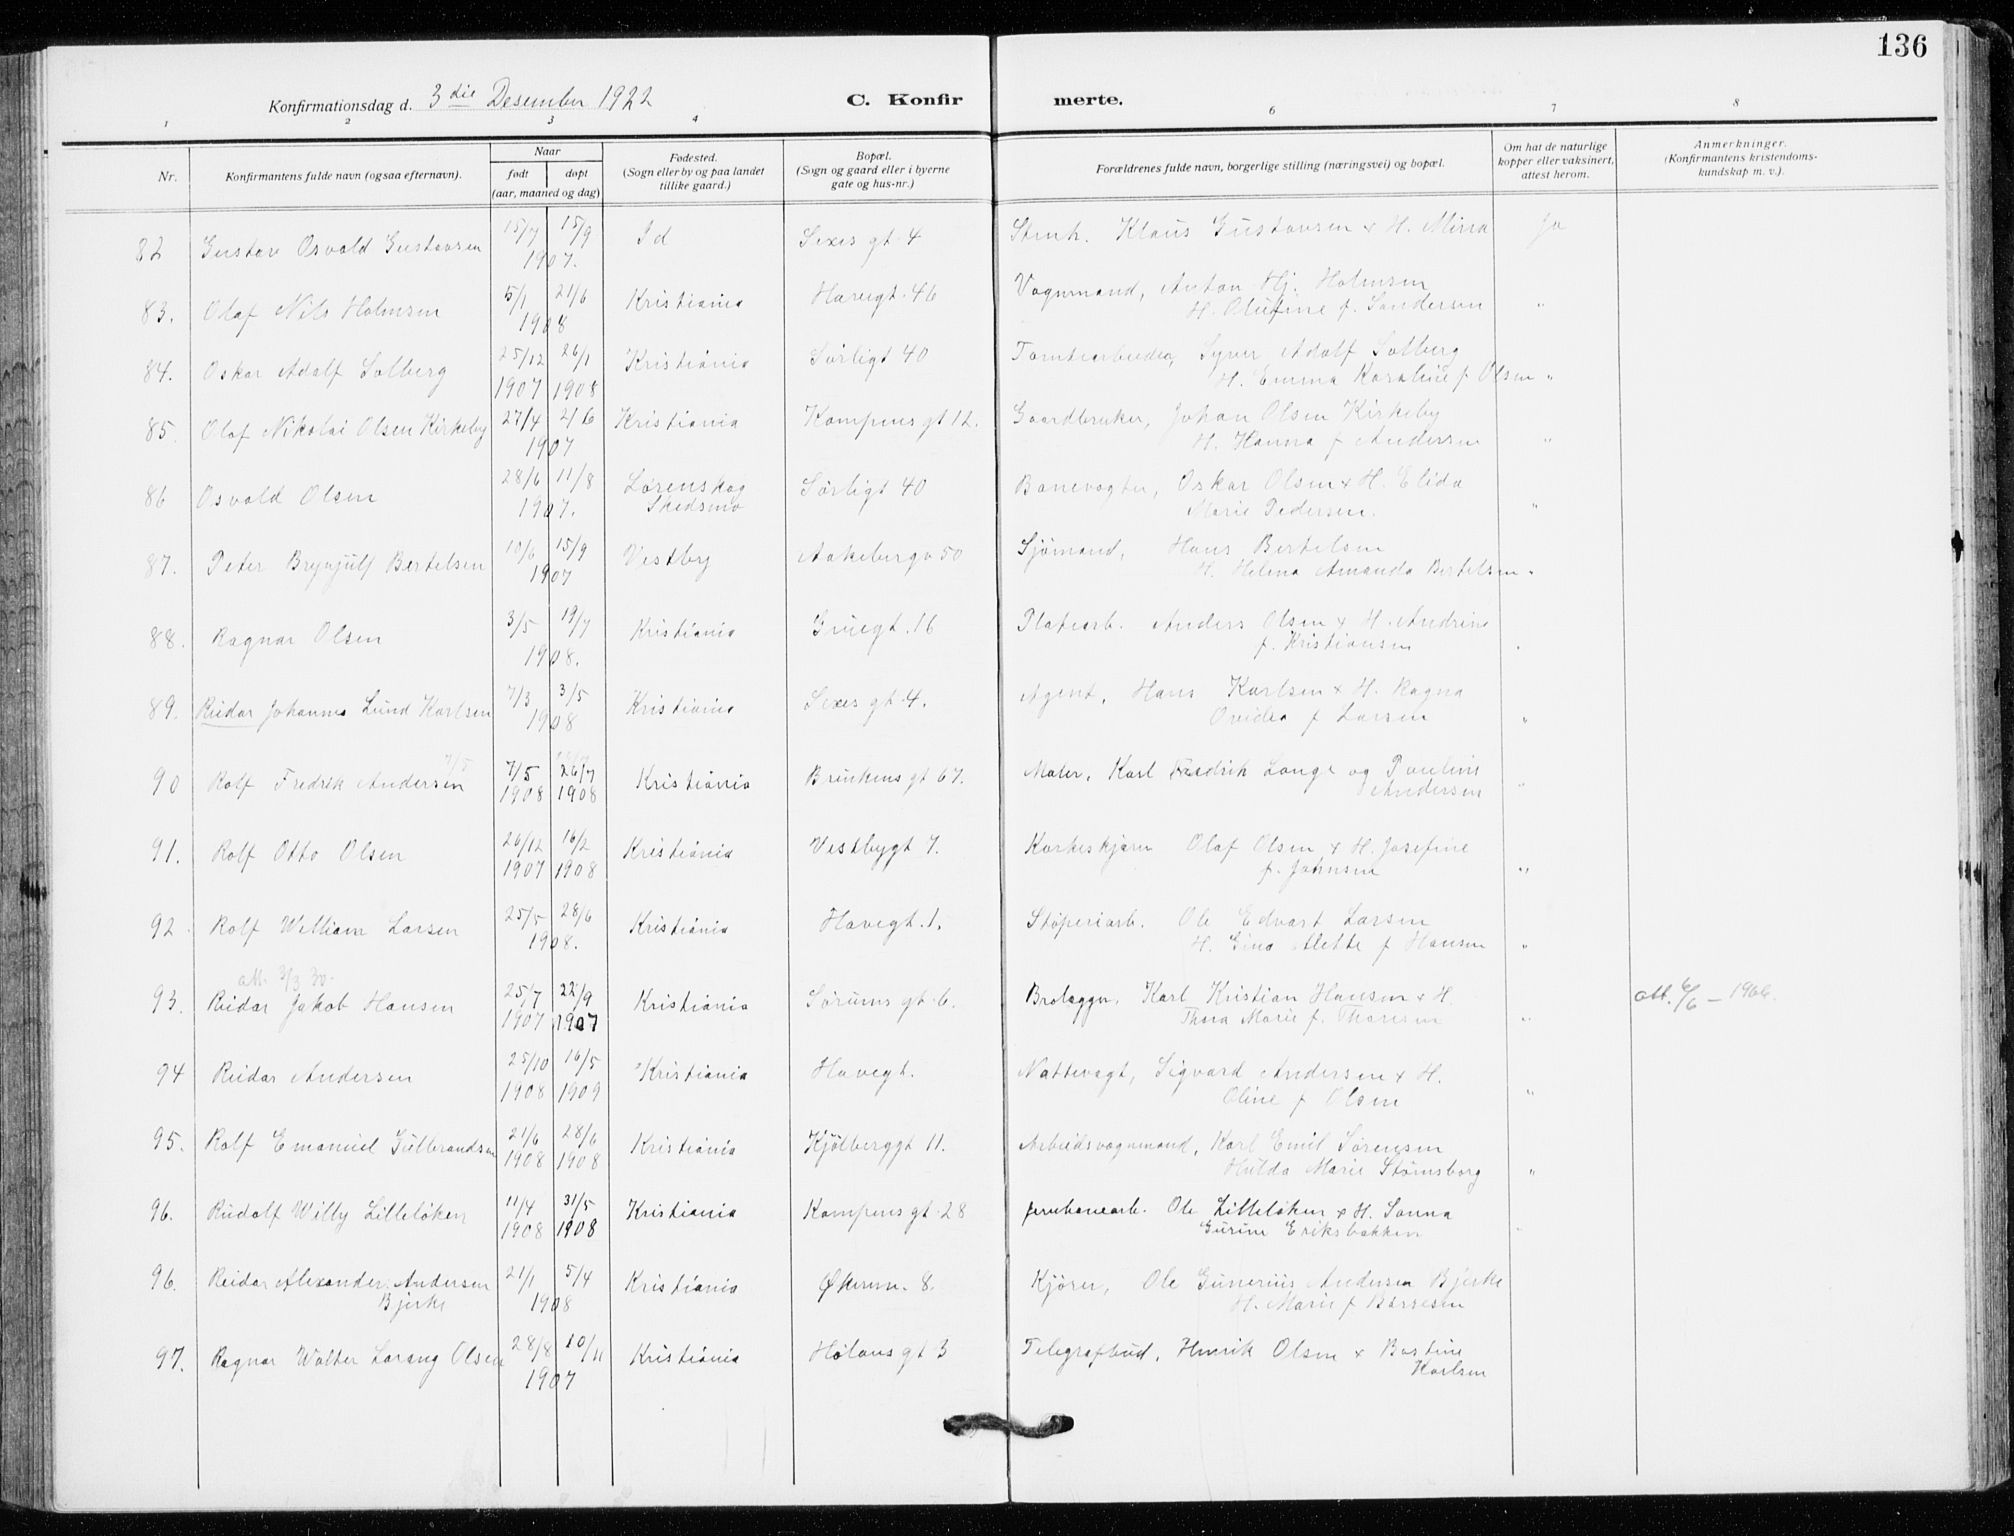 136
Konfirmationsdag d. 3die Desember 1922 C. Konfirmerte.
1 2 3 4 6 7 8
Nr. Konfirmantens fulde navn (ogsaa efternavn). Naar født døpt (aar, maaned og dag) Fødested. (Sogn eller by og paa landet tillike gaard.) Bopæl. (Sogn og gaard eller i byerne gate og hus-nr.) Forældrenes fulde navn, borgerlige stilling (næringsvei) og bopæl. Om hat de naturlige kopper eller vaksinert, attest herom. Anmerkninger. (Konfirmantens kristendoms-kundskap m. v.).
82 Gustav Osvald Gustavsen 15/7 15/9 1907. Id Sexes gt. 4 Stenh. Klaus Gustavsen & H. Mina Ja
83. Olaf Nils Holmsen 5/1 21/6 1908 Kristiania Havegt. 46 Vognmand, Anton Hj. Holmsen
H. Olufine f. Sandersen "
84. Oskar Adolf Solberg 25/12 1907 26/1 1908 Kristiania Sørligt 40 Tomtearbeider, Syver Adolf Solberg
H. Emma Karoline f Olsen "
85. Olaf Nikolai Olsen Kirkeby 27/4 2/6 1907 Kristiania Kampens gt 12. Gaardbruker, Johan Olsen Kirkeby
H. Hanna f Andersen "
86 Osvald Olsen 28/6 11/8 1907. Lørenskog Skedsmo Sørligt 40 Banevogter, Oskar Olsen & H. Elida
Marie Pedersen. "
87. Peter Brynjulf Bertelsen 10/6 15/9 1907 Vestby Aakebergv 50 Sjömand, Hans Bertelsen
H. Helena Amanda Bertelsen "
88. Ragnar Olsen 3/5 19/7 1908. Kristiania Gruegt. 16 Platearb. Anders Olsen & H. Andrine
f. Kristiansen "
89. Reidar Johannes Lund Karlsen 7/3 3/5 1908 Kristiania Sexes gt. 4. Agent, Hans Karlsen & H. Ragna
Ovidea f Larsen "
90 Rolf Fredrik Andersen 7/5 1908 26/7 1908 Kristiania Brinkens gt 67. Maler, Karl Fredrik Lange og Pauline
Andersen "
91. Rolf Otto Olsen 26/12 1907 16/2 1908 Kristiania Vestbygt 7. Korkeskjærer Olaf Olsen & H. Josefine
f. Johnsen "
92. Rolf William Larsen 25/5 28/6 1908. Kristiania Havegt. 1. Støperiarb. Ole Edvart Larsen
H. Gina Alette f Hansen "
att. 3/3 30.
93. Reidar Jakob Hansen 25/7 1907 22/9 1907 Kristiania Sørums gt. 6. Brolæggr. Karl Kristian Hansen & H.
Thora Marie f. Thoresen " att. 6/6 – 1966.
94 Reidar Andersen 25/10 1908 16/5 1909 Kristiania Havegt. Nattevagt, Sigvard Andersen & H.
Oline f Olsen "
95. Rolf Emanuel Gulbrandsen 21/6 1908 28/6 1908 Kristiania Kjölberggt 11. Arbeidsvognmand, Karl Emil Sørensen
Hulda Marie Stømsborg "
96. Rudolf Willy Lilleløken 11/4 1908 31/5 1908 Kristiania Kampens gt. 28 Jernbanearb. Ole Lilleløken & H. Sanna
Gurine Eriksbakken "
96. Reidar Alexander Andersen Bjerke 21/1 5/4 1908 Kristiania Økernv. 8. Kjörer, Ole Gunerius Andersen Bjerke
H. Marie f Børresen
97. Ragnar Walter Larang Olsen 28/8 10/11 1907 Kristiania Hølans gt 3 Telegrafbud, Henrik Olsen & Bastine
Karlsen